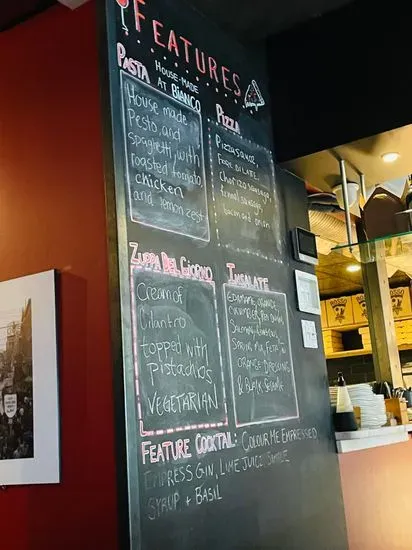 FEATURES
PASTA HOUSE-MADE
AT BIANCO
House made
Pesto, and
spaghetti, with
roasted tomato,
chicken
and lemon zest
PIZZA
Pizza sauce,
Fior di latte,
Chorizo sausage,
fennel sausage,
bacon and onion
ZUPPA DEL GIORNO
Cream of
Cilantro
topped with
pistachios
VEGETARIAN
INSALATE
EDAMAME, ORANGE
CUCUMBER, RED ONION
SALMON, COUSCOUS
SPRING MIX, FETA
ORANGE DRESSING
& BLACK SESAME
FEATURE COCKTAIL: COLOUR ME EMPRESSED
EMPRESS GIN, LIME JUICE, SIMPLE
SYRUP + BASIL